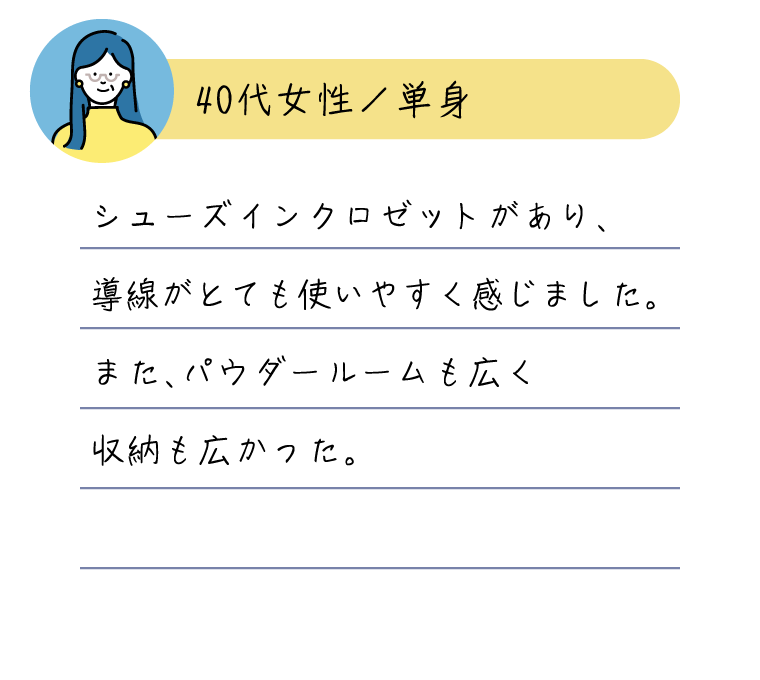 40代女性／単身
シューズインクロゼットがあり、
導線がとても使いやすく感じました。
また、パウダールームも広く
収納も広かった。